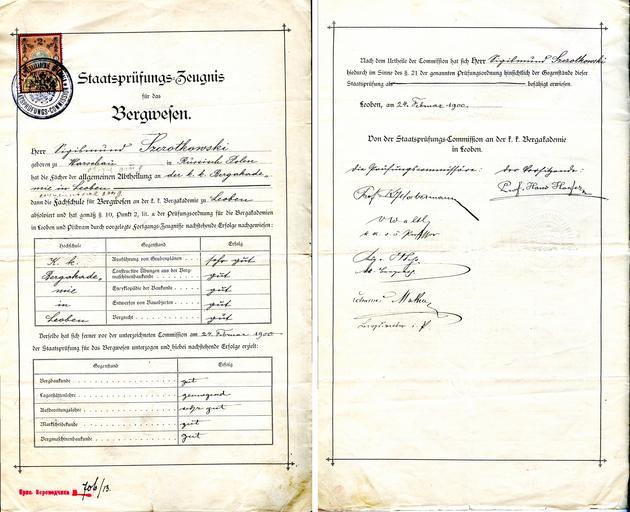 Staatsprüfungs-Zeugnis
für das
Bergwesen.
Herr Sigismund Szrotkowski
geboren zu Warschau in Russisch Polen
hat die Fächer der allgemeinen Abtheilung an der k. k. Bergakade-
mie in Leoben
dann die Fachschule für Bergwesen an der k. k. Bergakademie zu Leoben
absolviert und hat gemäß § 10, Punkt 2, lit. a der Prüfungsordnung für die Bergakademien
in Leoben und Přibram durch vorgelegte Fortgangs-Zeugnisse nachstehende Erfolge nachgewiesen:
Hochschule Gegenstand Erfolg
K. k. Ausführung von Grubenplänen sehr gut
Bergakade- Constructive Übungen aus der Berg-
maschinenbaukunde gut
mie Encyklopädie der Baukunde gut
in Entwerfen von Bauobjecten gut
Leoben Bergrecht gut
Derselbe hat sich ferner vor der unterzeichneten Commission am 24. Februar 1900
der Staatsprüfung für das Bergwesen unterzogen und hiebei nachstehende Erfolge erzielt:
Gegenstand Erfolg
Bergbaukunde gut
Lagerstättenlehre genügend
Aufbereitungslehre sehr gut
Markscheidekunde gut
Bergmaschinenbaukunde gut
706/13.
Nach dem Urtheile der Commission hat sich Herr Sigismund Szrotkowski
hiedurch im Sinne des § 21 der genannten Prüfungsordnung hinsichtlich der Gegenstände dieser
Staatsprüfung als befähigt erwiesen.
Leoben, am 24. Februar 1900.
Von der Staatsprüfungs-Commission an der k. k. Bergakademie
in Leoben.
die Prüfungscommissäre: der Vorsitzende:
Prof. Hans Hoefer
V. Waltl
k. k. o. ö. Professor